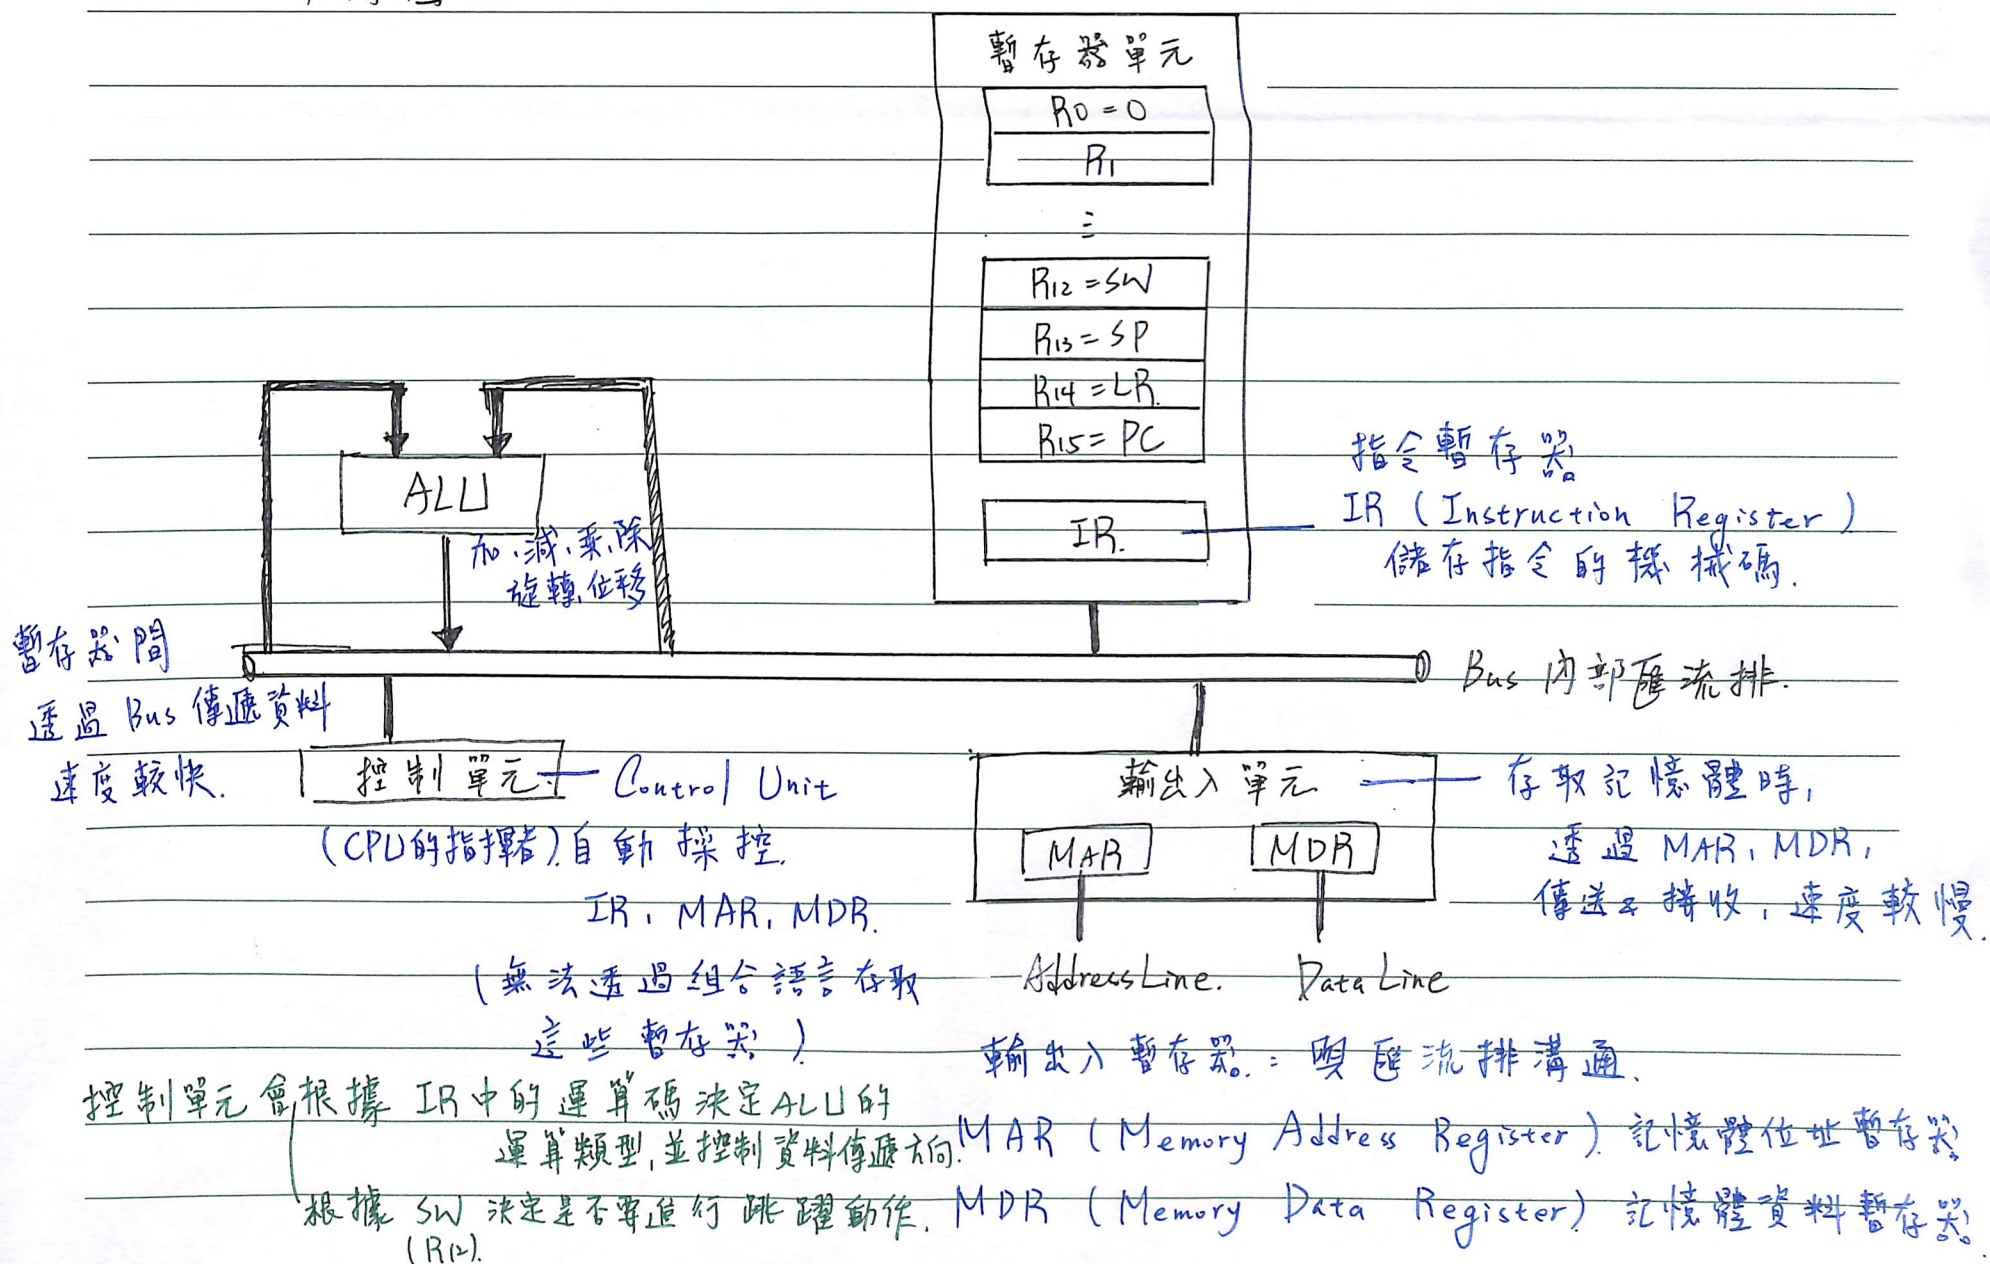 暫存器單元
R0=0
R1
⋮
R12=SW
R13=SP
R14=LR.
R15=PC
IR.
指令暫存器
IR (Instruction Register)
儲存指令的機械碼.
ALU
加、減、乘、除
旋轉、位移
暫存器間
透過 Bus 傳遞資料
速度較快.
Bus 內部匯流排.
控制單元.
Control Unit
(CPU的指揮者).自動操控.
IR、MAR、MDR.
(無法透過組合語言存取
這些暫存器)
輸出入單元.
MAR
MDR
Address Line.
Data Line
存取記憶體時,
透過 MAR、MDR,
傳送&接收,速度較慢.
控制單元會根據 IR中的運算碼決定ALU的
運算類型,並控制資料傳遞方向.
根據 SW 決定是否要進行跳躍動作.
(R12).
輸出入暫存器.:與匯流排溝通.
MAR (Memory Address Register). 記憶體位址暫存器
MDR (Memory Data Register) 記憶體資料暫存器.